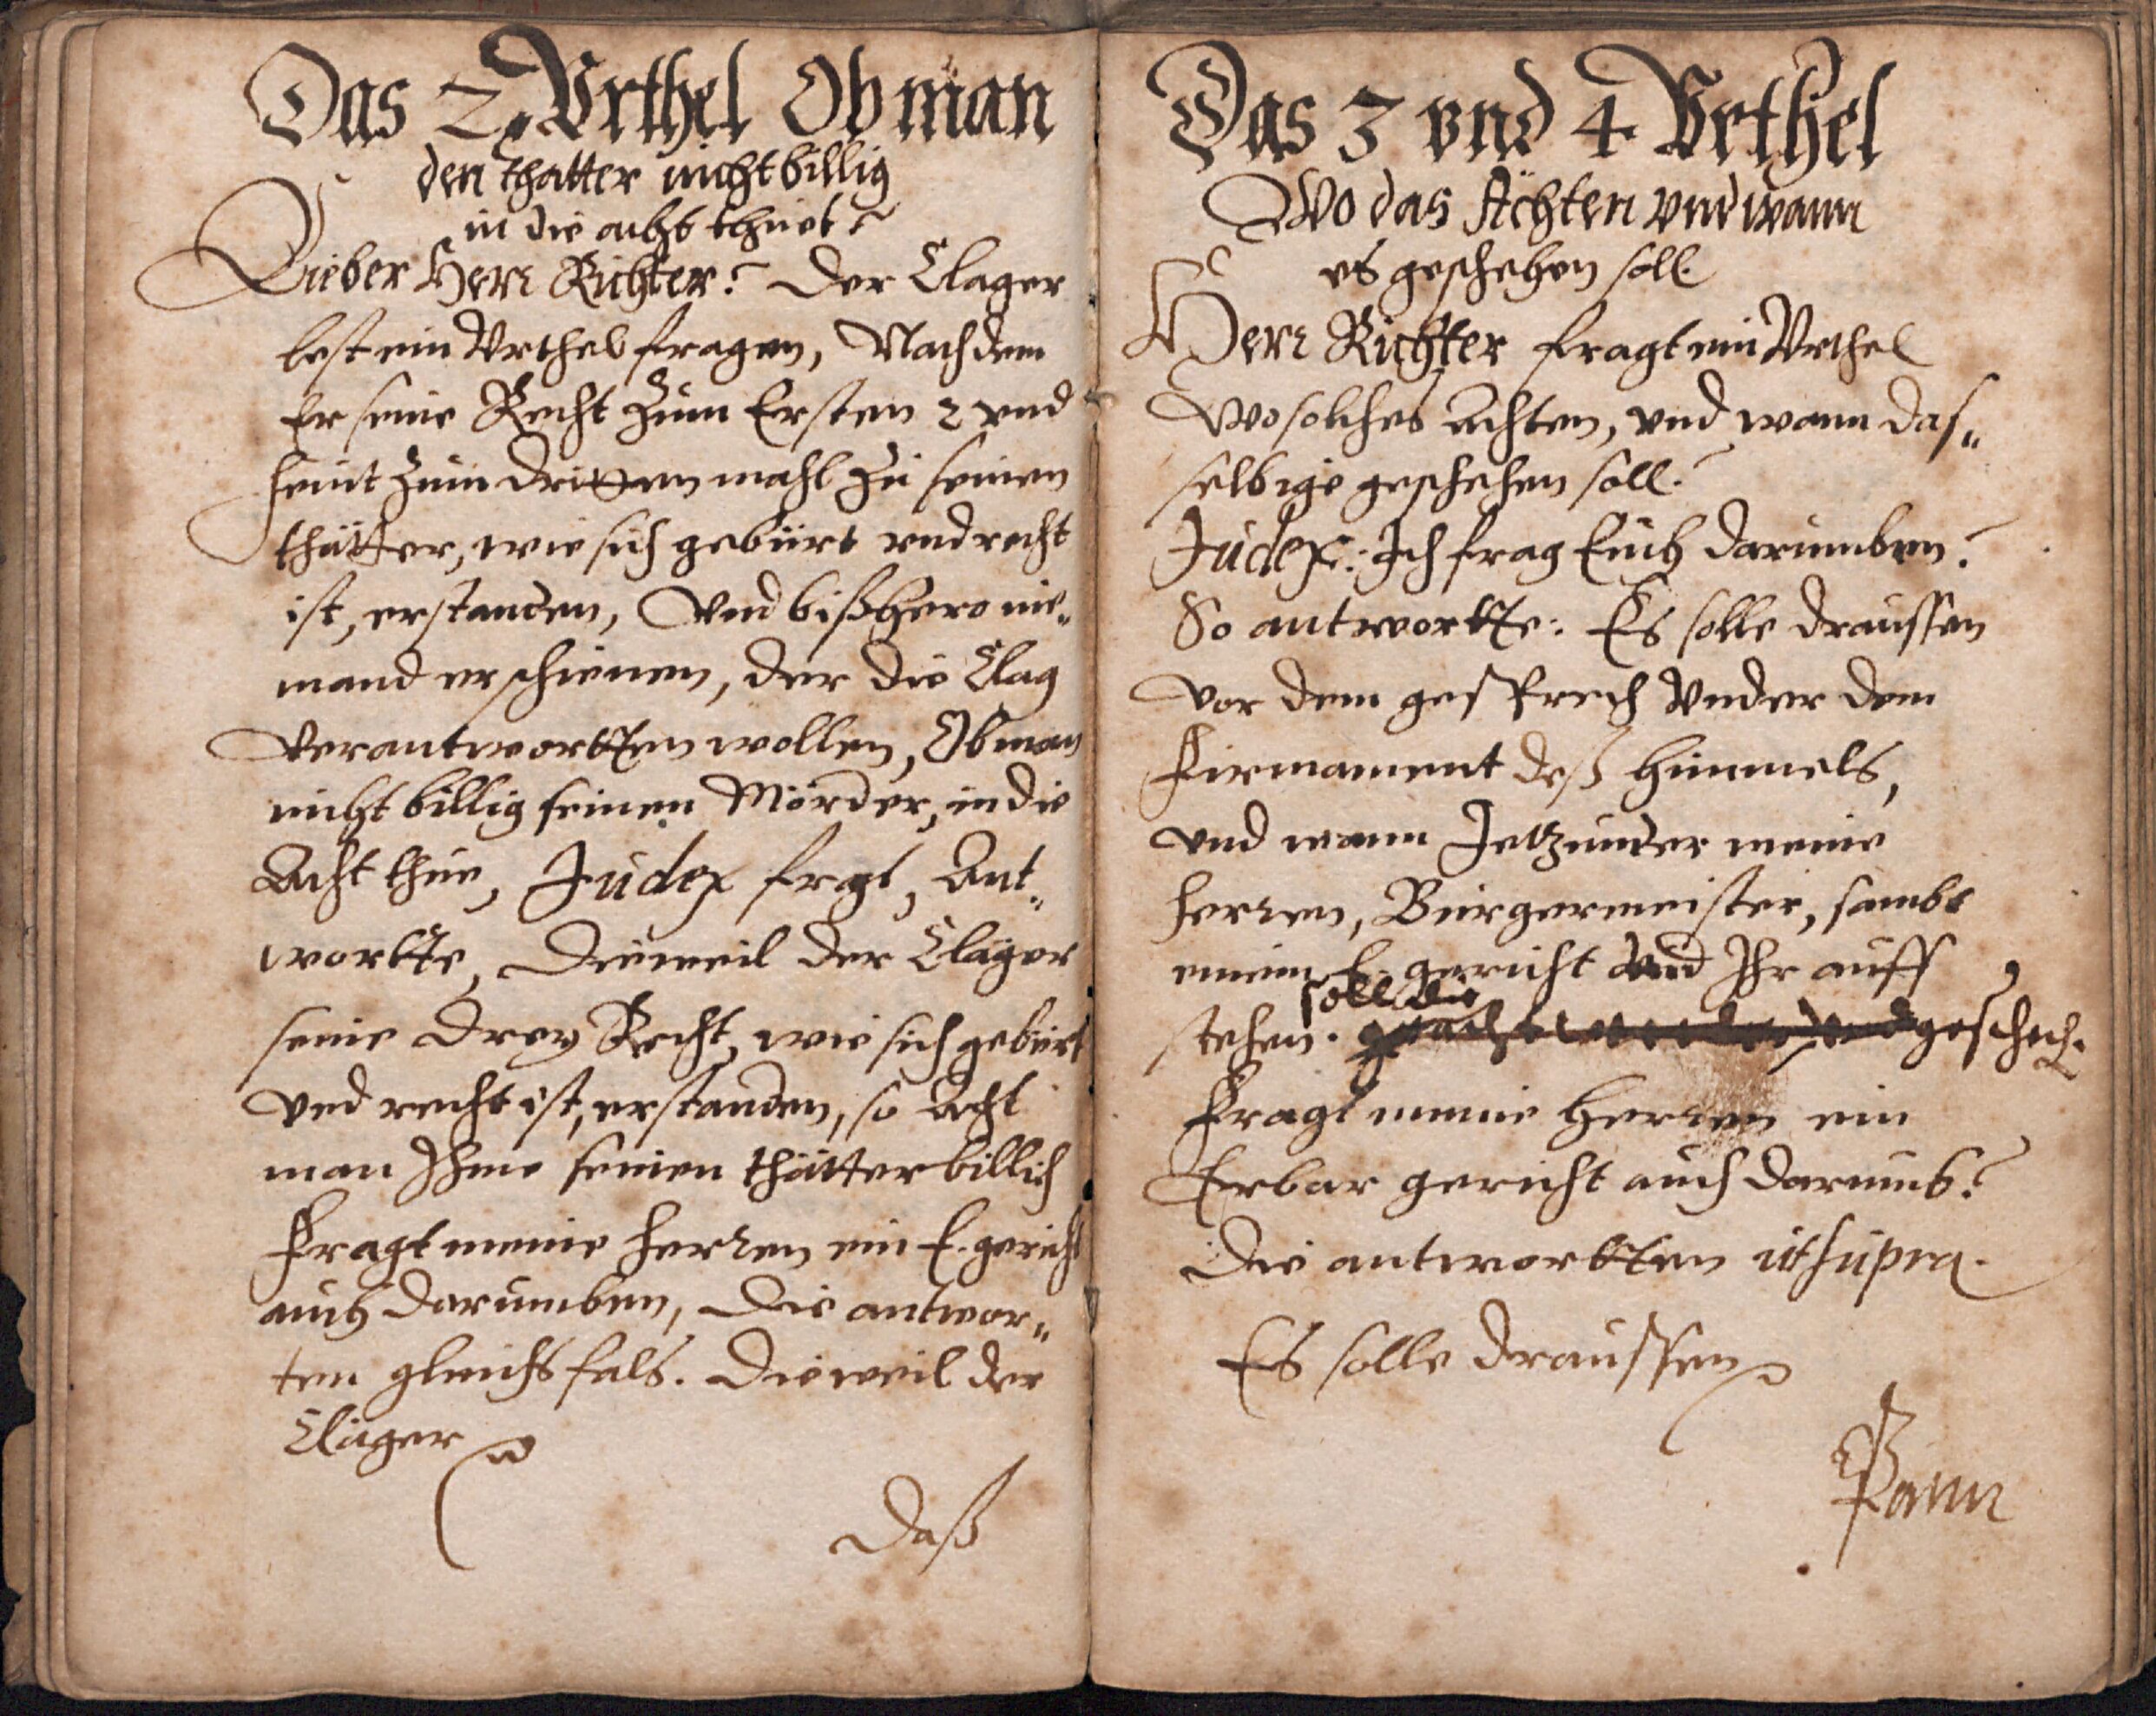 Das 2. Vrthel Ob man
den thätter nicht billig
in die acht thuet?
Lieber Herr Richter? Der Clager
lest ein Vrthel fragen, Nach dem
Er seine Recht zum Ersten 2 vnd
heut zum dritten mahl zu seinen
thätter, wie sich gebürt vnd recht
ist, erstanden, Vnd bißhero nie„
mand erschienen, der die Clag
verantwortten wollen, Ob man
nicht billig seinen Mörder, in die
Acht thue, Judex fragt, Ant„
wortte, Dieweil der Clager
seine Drey Recht, wie sich gebürt
vnd recht ist, erstanden, so Acht
man Ihme seinen thätter billich
Fragt meine herren ein E. gericht
auch darumben, Die antwor„
ten gleichsfals. Dieweil der
Clager
Daß
Das 3 vnd 4 Vrthel
Wo das Ächten vnd wann
es geschehen soll.
Herr Richter fragt ein Vrthel
Wo solches Achten, vnd wann das„
selbige geschehen soll?
Judex: Ich frag Euch darumben?
So antwortte: Es solle draussen
vor dem gesprech Vnder dem
Firmament deß himmels,
vnd wann Jetzunder meine
herren, Bürgermeister, sambt
einem E. gericht vnd Ihr auff
soll die
stehen. geschech.
Fragt meine herren ein
Erbar gericht auch darumb?
Die antwortten ut supra.
Es solle draussen
Wann